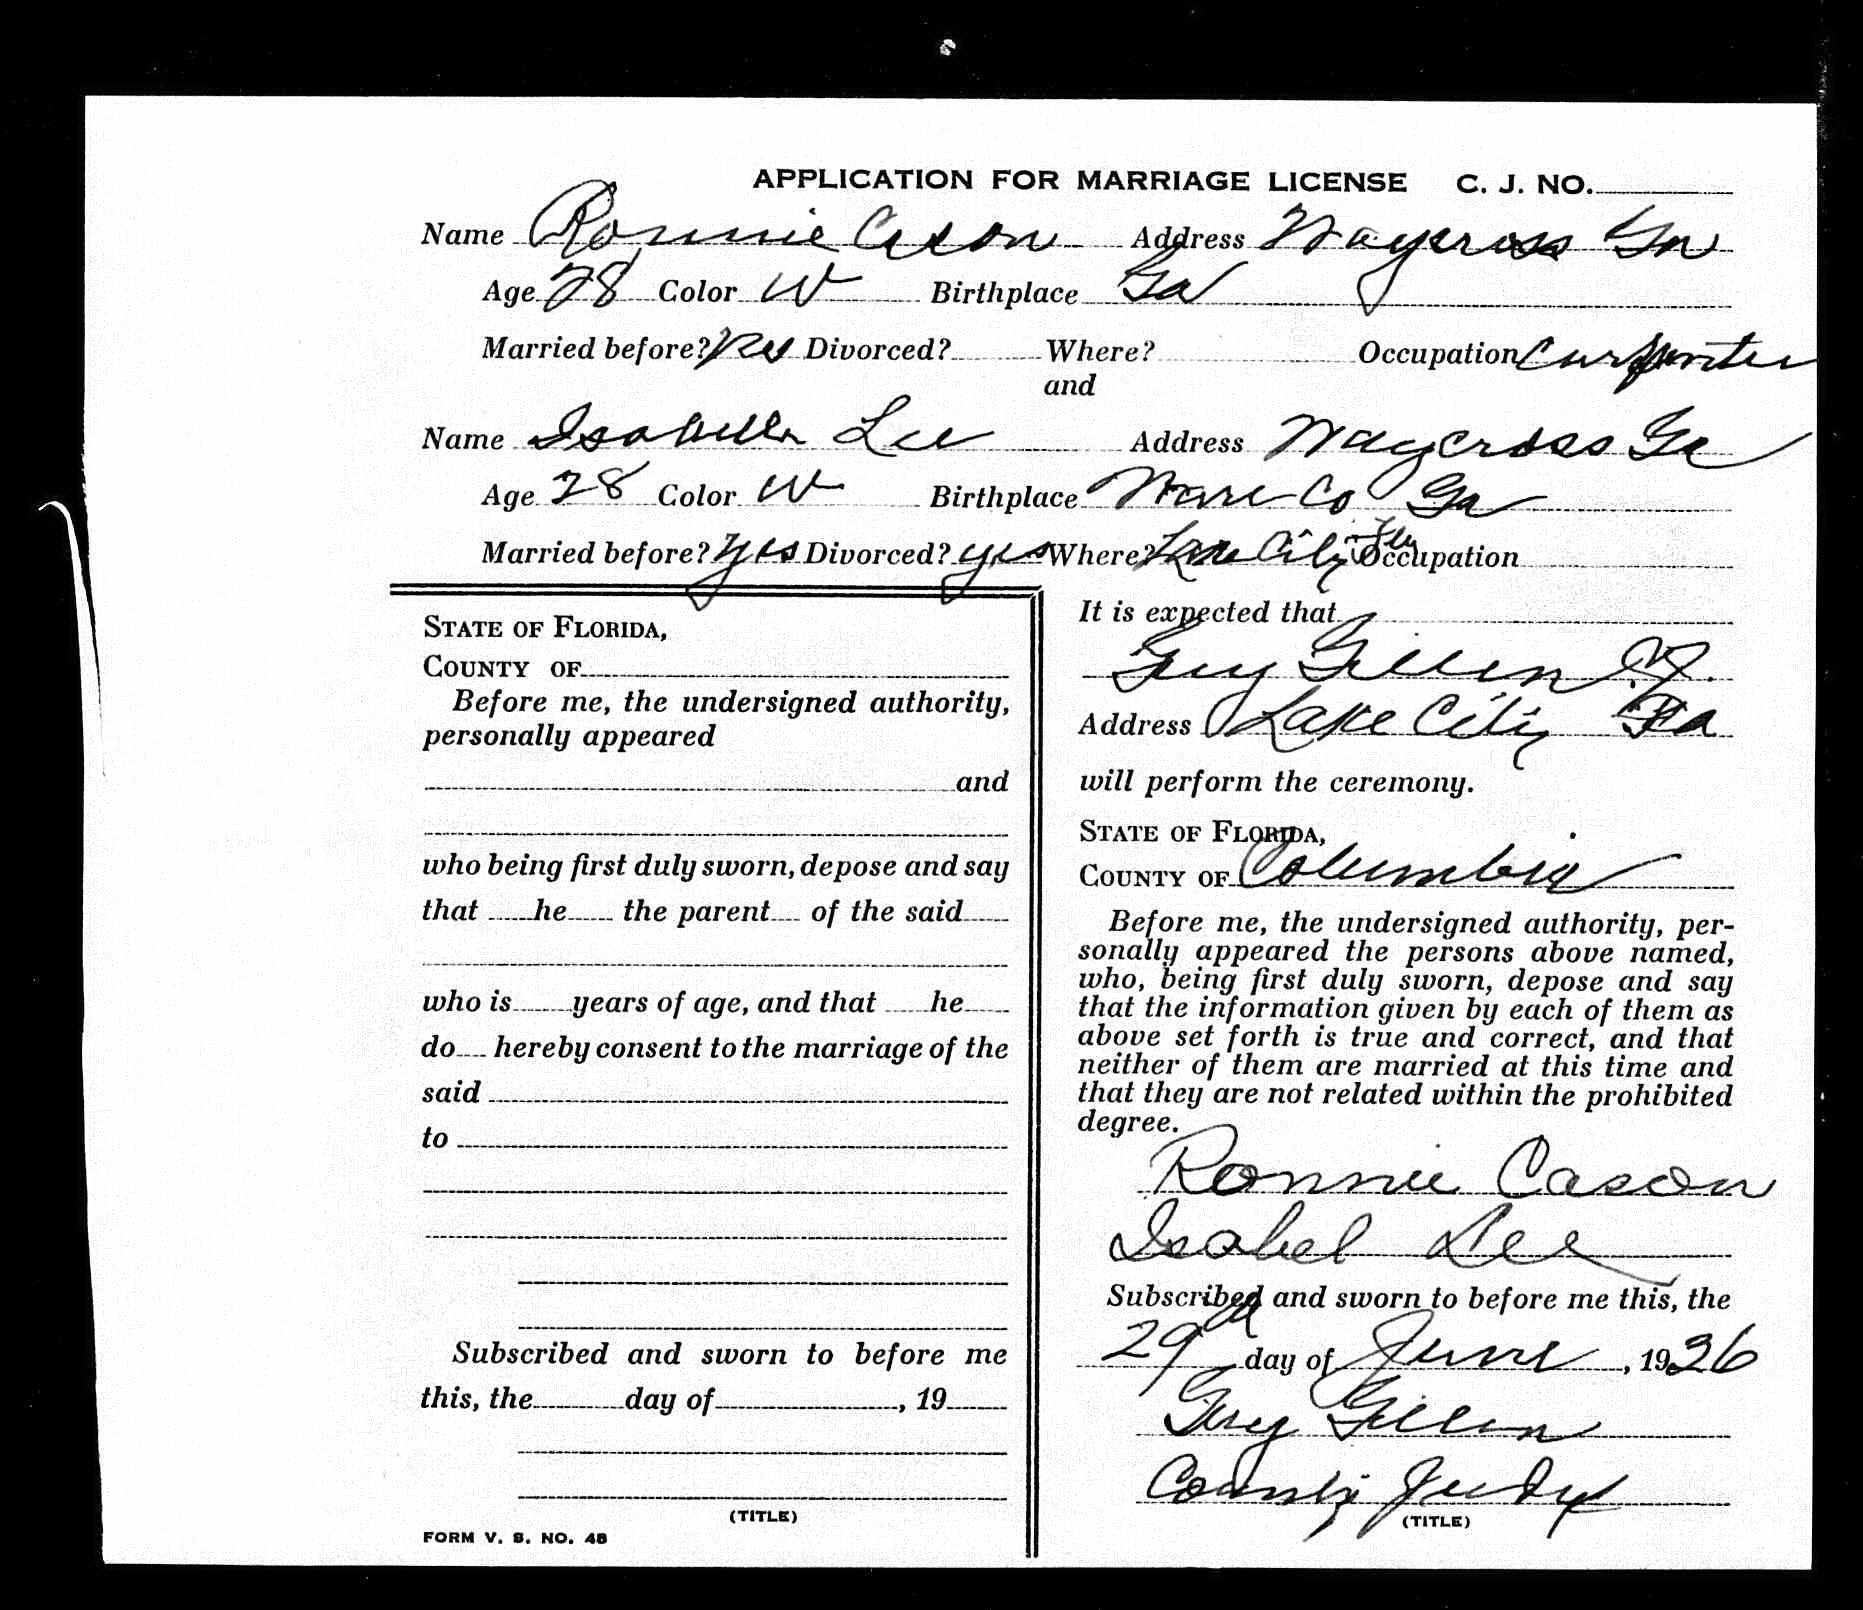 APPLICATION FOR MARRIAGE LICENSE C. J. NO.
Name Ronnie Cason Address Waycross Ga
Age 28 Color W Birthplace Ga
Married before? No Divorced? Where? Occupation Carpenter
and
Name Isabella Lee Address Waycross Ga
Age 28 Color W Birthplace Ware Co Ga
Married before? yes Divorced? yes Where? Lake City Fla Occupation
STATE OF FLORIDA,
COUNTY OF
Before me, the undersigned authority,
personally appeared
and
who being first duly sworn, depose and say
that he the parent of the said
who is years of age, and that he
do hereby consent to the marriage of the
said
to
Subscribed and sworn to before me
this, the day of , 19
(TITLE)
FORM V. S. NO. 48
It is expected that
Guy Gillen C.J.
Address Lake City Fla
will perform the ceremony.
STATE OF FLORIDA,
COUNTY OF Columbia
Before me, the undersigned authority, per-
sonally appeared the persons above named,
who, being first duly sworn, depose and say
that the information given by each of them as
above set forth is true and correct, and that
neither of them are married at this time and
that they are not related within the prohibited
degree.
Ronnie Cason
Isabel Lee
Subscribed and sworn to before me this, the
29 day of June, 1936
Guy Gillen
County Judge
(TITLE)